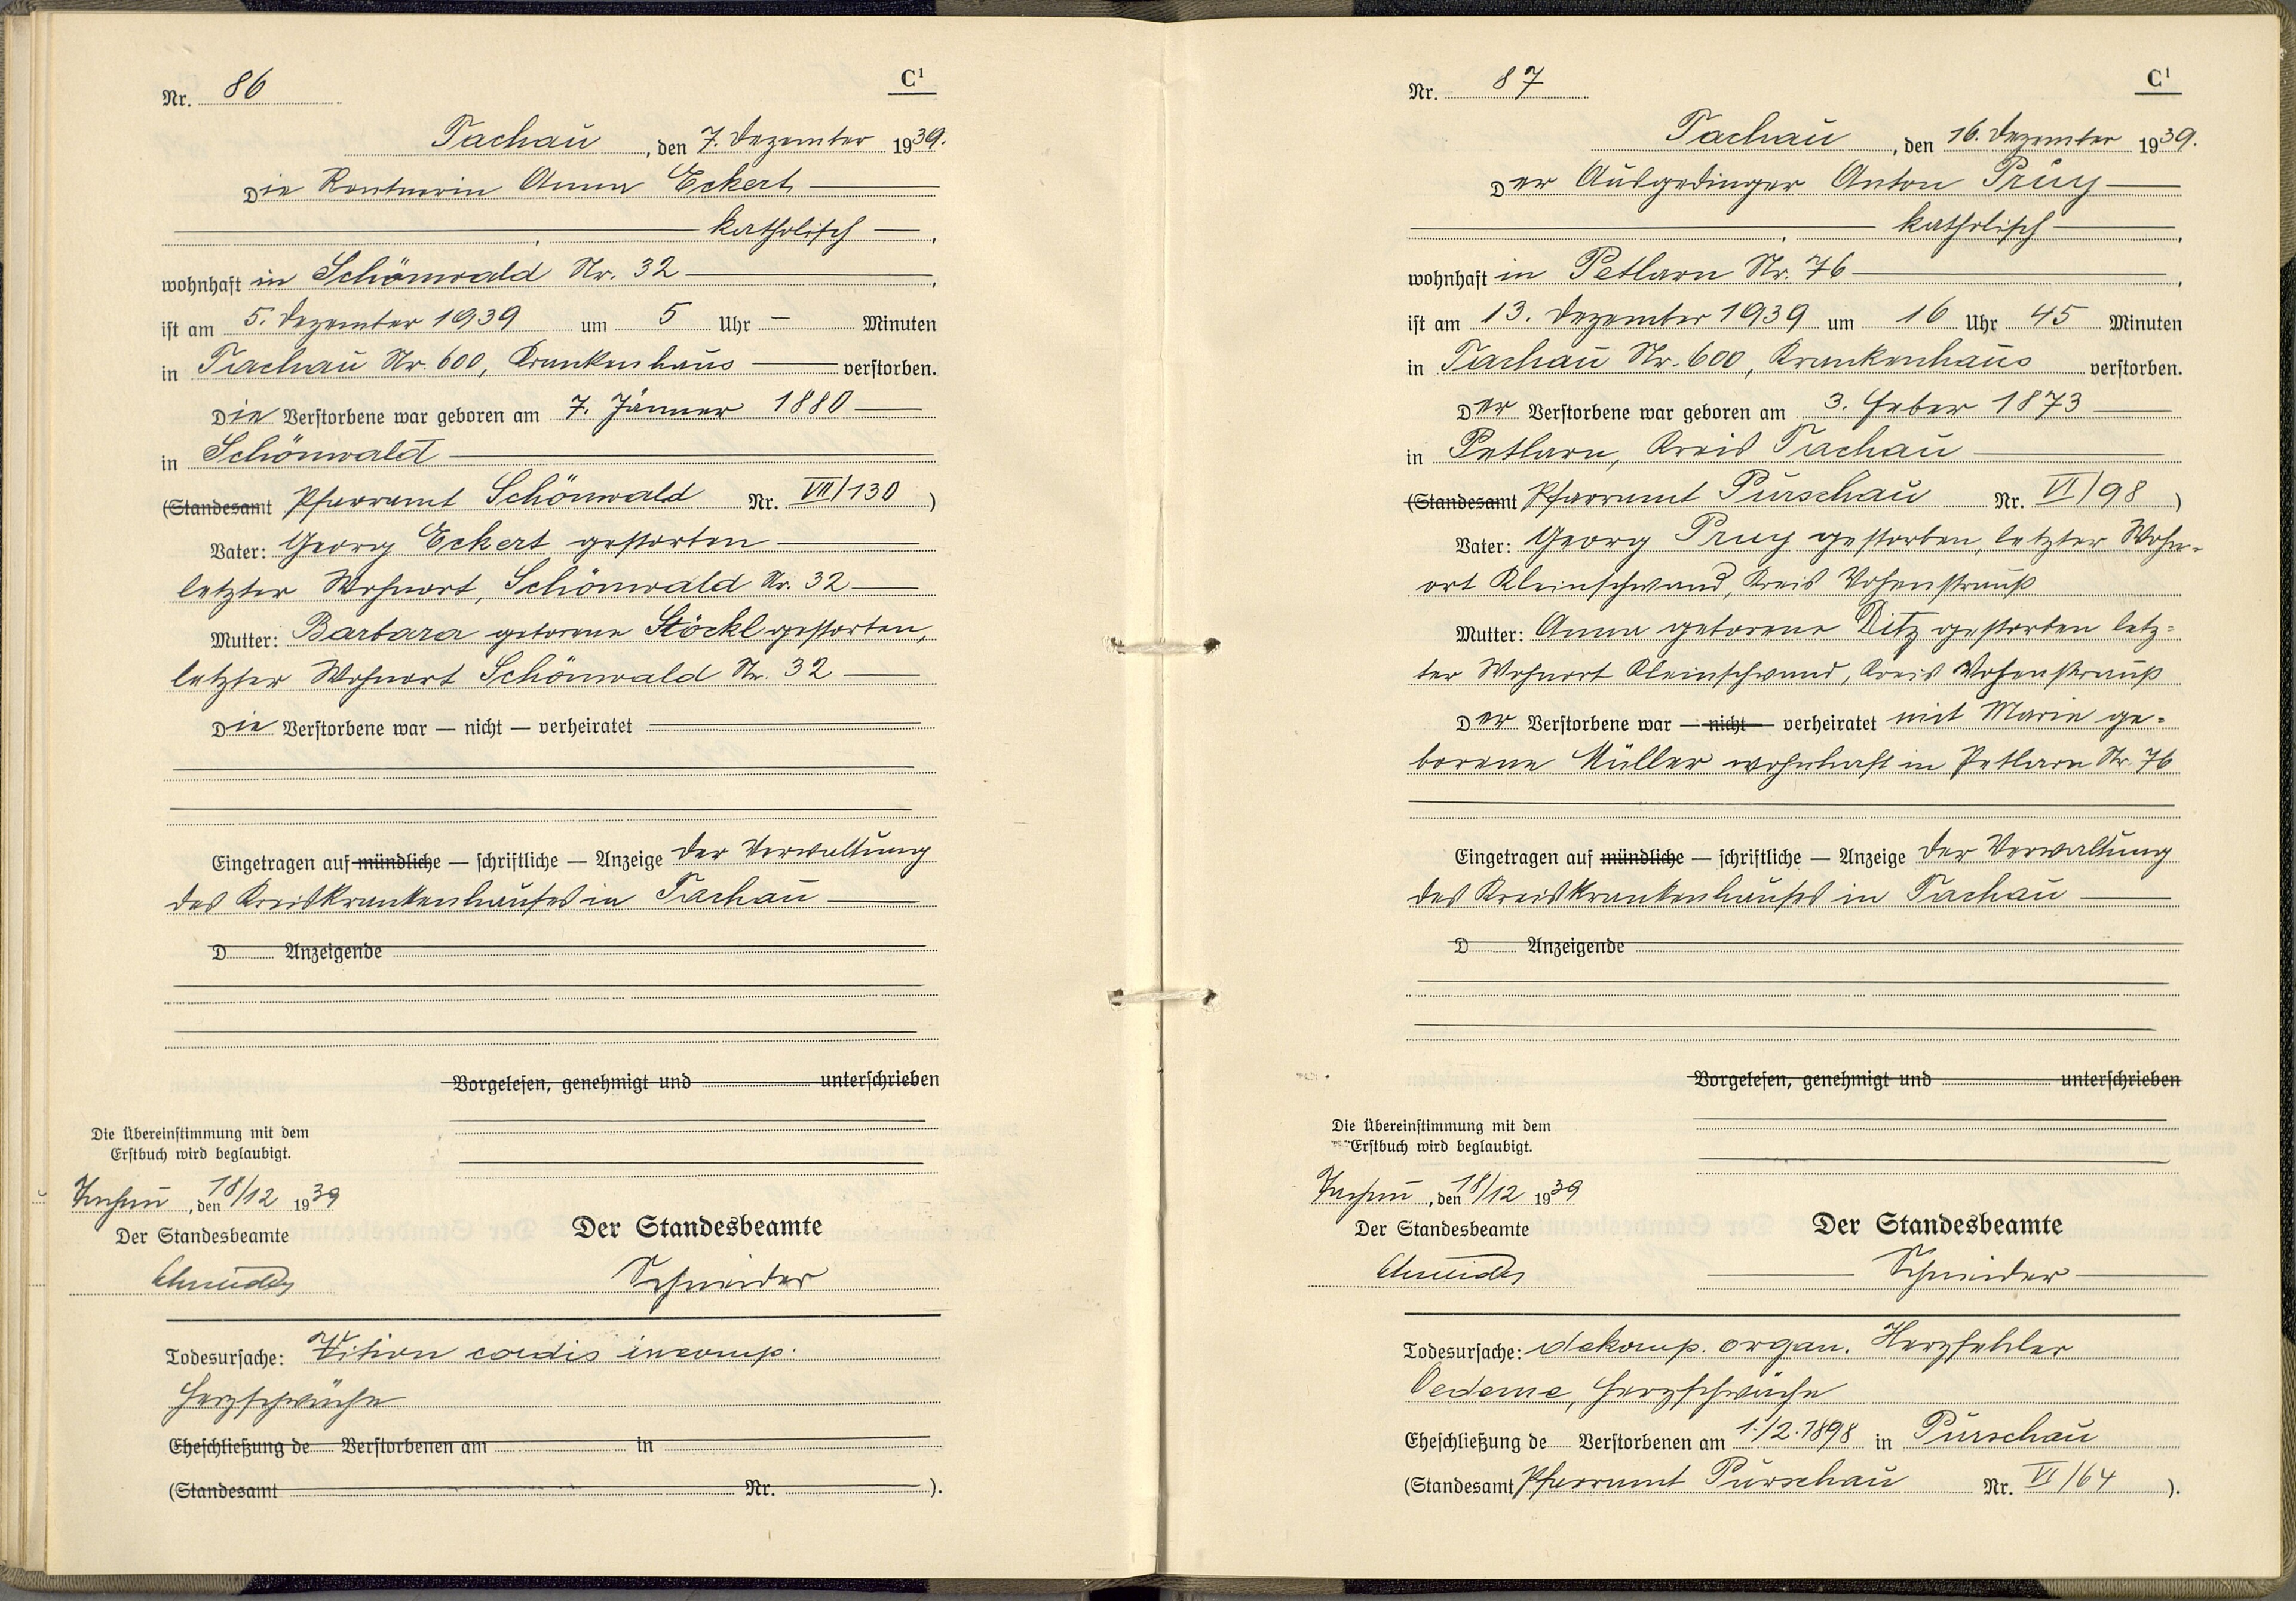 Nr. 86
C¹
Tachau, den 7. Dezember 1939.
Die Rentnerin Anna Eckert
katholisch,
wohnhaft in Schönwald Nr. 32,
ist am 5. Dezember 1939 um 5 Uhr – Minuten
in Tachau Nr. 600, Krankenhaus verstorben.
Die Verstorbene war geboren am 7. Jänner 1880
in Schönwald
(Standesamt Pfarramt Schönwald Nr. VII/130)
Vater: Georg Eckert gestorben
letzter Wohnort, Schönwald Nr. 32
Mutter: Barbara geborene Stöckl gestorben,
letzter Wohnort Schönwald Nr. 32
Die Verstorbene war — nicht — verheiratet
Eingetragen auf mündliche — schriftliche — Anzeige der Verwaltung
des Kreiskrankenhauses in Tachau
D Anzeigende
Vorgelesen, genehmigt und unterschrieben
Die Übereinstimmung mit dem
Erstbuch wird beglaubigt.
Tachau, den 18/12 1939
Der Standesbeamte
Schneider
Der Standesbeamte
Schneider
Todesursache: Vitium cordis incomp.
Herzschwäche
Eheschließung de Verstorbenen am in
(Standesamt Nr. ).
Nr. 87
C¹
Tachau, den 16. Dezember 1939.
Der Ausgedinger Anton Pruy
katholisch,
wohnhaft in Petlarn Nr. 76,
ist am 13. Dezember 1939 um 16 Uhr 45 Minuten
in Tachau Nr. 600, Krankenhaus verstorben.
Der Verstorbene war geboren am 3. Feber 1873
in Petlarn, Kreis Tachau
(Standesamt Pfarramt Purschau Nr. VI/98)
Vater: Georg Pruy gestorben, letzter Wohn-
ort Kleinschwand, Kreis Vohenstrauß
Mutter: Anna geborene Ditz gestorben letz-
ter Wohnort Kleinschwand, Kreis Vohenstrauß
Der Verstorbene war — nicht — verheiratet mit Marie ge-
borene Müller wohnhaft in Petlarn Nr. 76
Eingetragen auf mündliche — schriftliche — Anzeige der Verwaltung
des Kreiskrankenhauses in Tachau
D Anzeigende
Vorgelesen, genehmigt und unterschrieben
Die Übereinstimmung mit dem
Erstbuch wird beglaubigt.
Tachau, den 18/12 1939
Der Standesbeamte
Schneider
Der Standesbeamte
Schneider
Todesursache: dekomp. organ. Herzfehler
Oedeme, Herzschwäche
Eheschließung de Verstorbenen am 1./2.1898 in Purschau
(Standesamt Pfarramt Purschau Nr. VI/64).